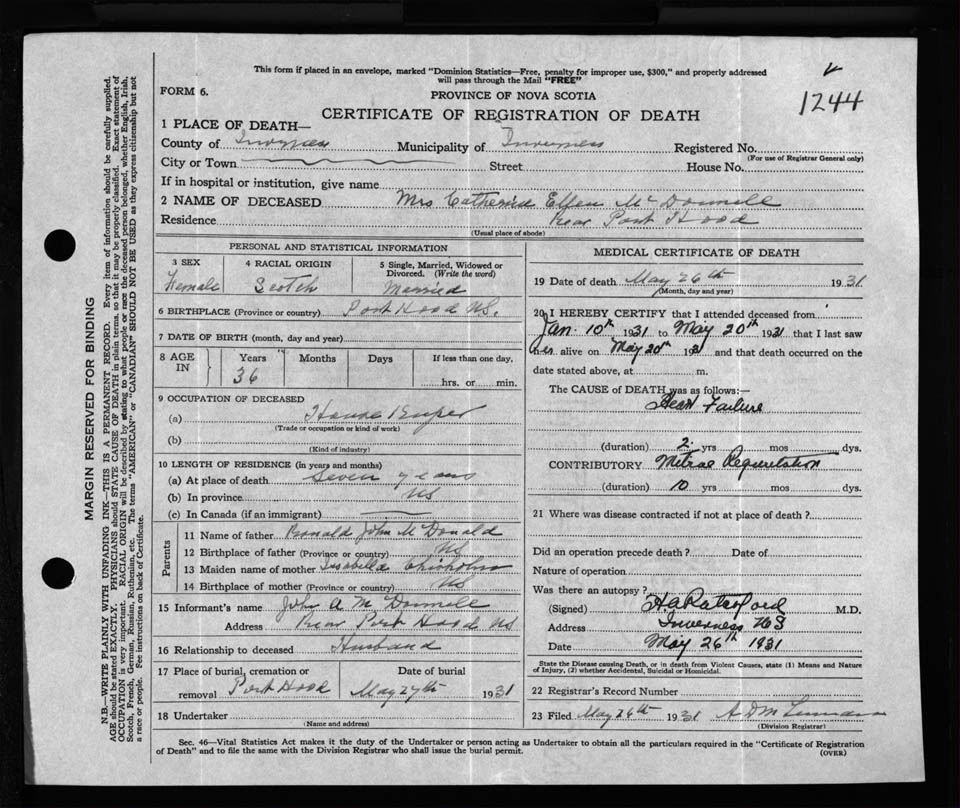 This form if placed in an envelope, marked "Dominion Statistics—Free, penalty for improper use, $300," and properly addressed
will pass through the Mail "FREE"
FORM 6.
PROVINCE OF NOVA SCOTIA
1244
CERTIFICATE OF REGISTRATION OF DEATH
1 PLACE OF DEATH—
County of Inverness Municipality of Inverness Registered No.
(For use of Registrar General only)
City or Town Street House No.
If in hospital or institution, give name
2 NAME OF DECEASED Mrs Catherine Ellen McDonnell
Residence Near Port Hood
(Usual place of abode)
PERSONAL AND STATISTICAL INFORMATION
3 SEX 4 RACIAL ORIGIN 5 Single, Married, Widowed or
Divorced. (Write the word)
Female Scotch Married
6 BIRTHPLACE (Province or country) Port Hood NS.
7 DATE OF BIRTH (month, day and year)
8 AGE IN Years Months Days If less than one day,
36 hrs. or min.
9 OCCUPATION OF DECEASED
(a) House Keeper
(Trade or occupation or kind of work)
(b)
(Kind of industry)
10 LENGTH OF RESIDENCE (in years and months)
(a) At place of death Seven years
(b) In province NS
(c) In Canada (if an immigrant)
Parents
11 Name of father Ronald John McDonald
12 Birthplace of father (Province or country) NS
13 Maiden name of mother Isabella Chisholm
14 Birthplace of mother (Province or country) NS
15 Informant's name John A McDonnell
Address Near Port Hood NS
16 Relationship to deceased Husband
17 Place of burial, cremation or removal Port Hood
Date of burial May 27th 1931
18 Undertaker
(Name and address)
MEDICAL CERTIFICATE OF DEATH
19 Date of death May 26th 1931
(Month, day and year)
20 I HEREBY CERTIFY that I attended deceased from
Jan. 10th 1931 to May 20th 1931 that I last saw
her alive on May 20th 1931 and that death occurred on the
date stated above, at m.
The CAUSE OF DEATH was as follows:—
Heart Failure
(duration) 2 yrs mos dys.
CONTRIBUTORY Mitral Regurgitation
(duration) 10 yrs mos dys.
21 Where was disease contracted if not at place of death?
Did an operation precede death? Date of
Nature of operation
Was there an autopsy?
(Signed) H A Ratchford M.D.
Address Inverness NS
Date May 26th 1931
State the Disease causing Death, or in death from Violent Causes, state (1) Means and Nature
of Injury, (2) whether Accidental, Suicidal or Homicidal.
22 Registrar's Record Number
23 Filed May 26th 1931 A D M
(Division Registrar)
Sec. 46—Vital Statistics Act makes it the duty of the Undertaker or person acting as Undertaker to obtain all the particulars required in the "Certificate of Registration
of Death" and to file the same with the Division Registrar who shall issue the burial permit.
(OVER)
MARGIN RESERVED FOR BINDING
N.B.—WRITE PLAINLY WITH UNFADING INK—THIS IS A PERMANENT RECORD. Every item of information should be carefully supplied.
AGE should be stated EXACTLY. PHYSICIANS should STATE CAUSE OF DEATH in plain terms, so that it may be properly classified. Exact statement of
OCCUPATION is very important. RACIAL ORIGIN will be described by stating to what people or race the deceased person belonged, whether English, Irish,
Scotch, French, German, Russian, Ruthenian, etc. The terms "AMERICAN" or "CANADIAN" SHOULD NOT BE USED as they express citizenship but not
a race or people. See instructions on back of Certificate.